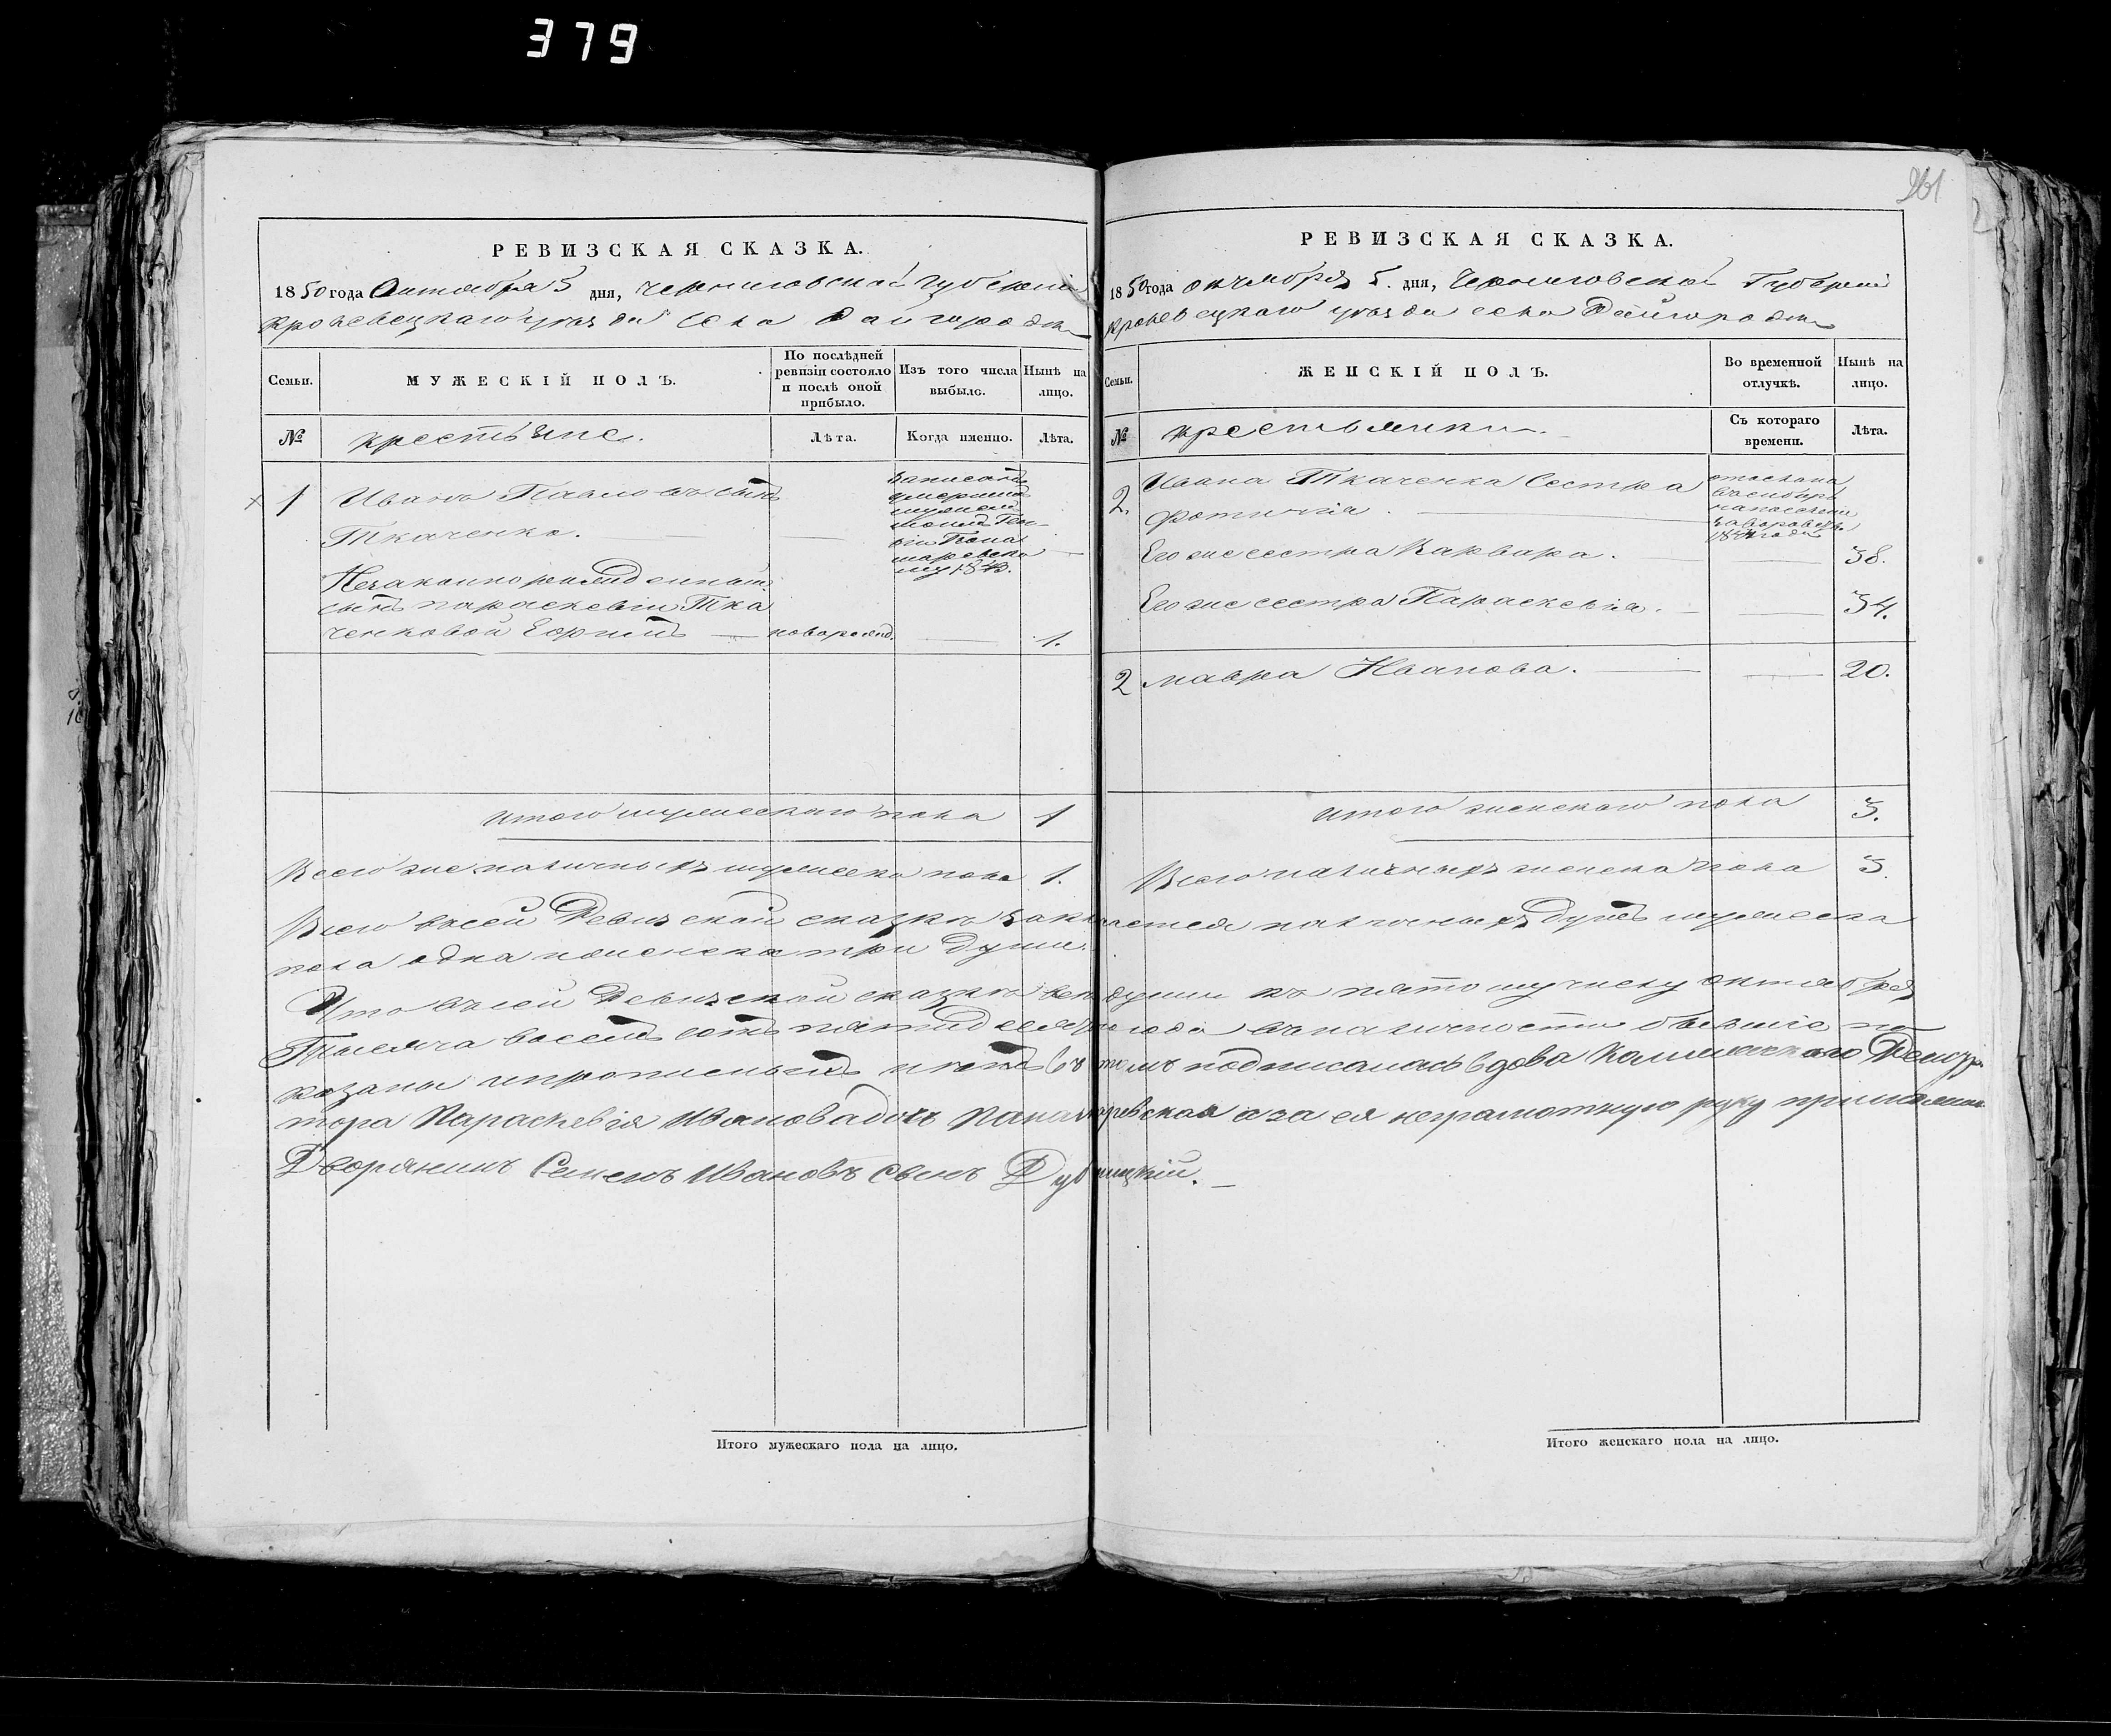 379
261
РЕВИЗСКАЯ СКАЗКА.
1850 года Октября 5 дня, Черниговской Губерніи
Кролевецкаго уезда села Райгородка
Семьи. МУЖЕСКІЙ ПОЛЪ. По послѣдней ревизіи состояло и послѣ оной прибыло. Изъ того числа выбыло. Нынѣ на лицо.
№ крестьяне. Лѣта. Когда именно. Лѣта.
1 Иванъ Павловъ сынъ
Ткаченко.
записанъ
1843.
Незаконнорожденный
сынъ Параскевіи Тка
ченковой Ефримъ — новорожд. — 1.
итого мужескаго пола 1
Всего же наличныхъ мужеска пола 1.
РЕВИЗСКАЯ СКАЗКА.
1850 года октября 5. дня, Черниговской Губерніи
Кролевецкаго уезда села Райгородка
Семьи. ЖЕНСКІЙ ПОЛЪ. Во временной отлучкѣ. Нынѣ на лицо.
№ крестьянки. Съ котораго времени. Лѣта.
2. Ивана Ткаченка Сестра
Фотинія.
Его же сестра Варвара. — 38.
Его же сестра Параскевіа. — 34.
2 Мавра Иванова. — 20.
итого женскаго пола 3.
Всего наличныхъ женска пола 3.
Всего въ сей Ревизской сказке наличныхъ душъ мужеска
пола одна и женска три души.
Что въ сей Ревизской сказке все души къ пятому числу октября
Тысяча восемь сотъ пятидесятого года въ наличности бывшие по
казаны и прописныхъ нетъ въ томъ подписалась вдова Колишскаго
Параскевія Иванова дочь Панамаревская а за ея неграмотную руку приложилъ
Дворянинъ Семенъ Ивановъ сынъ Дубницкій. —
Итого мужескаго пола на лицо.
Итого женскаго пола на лицо.